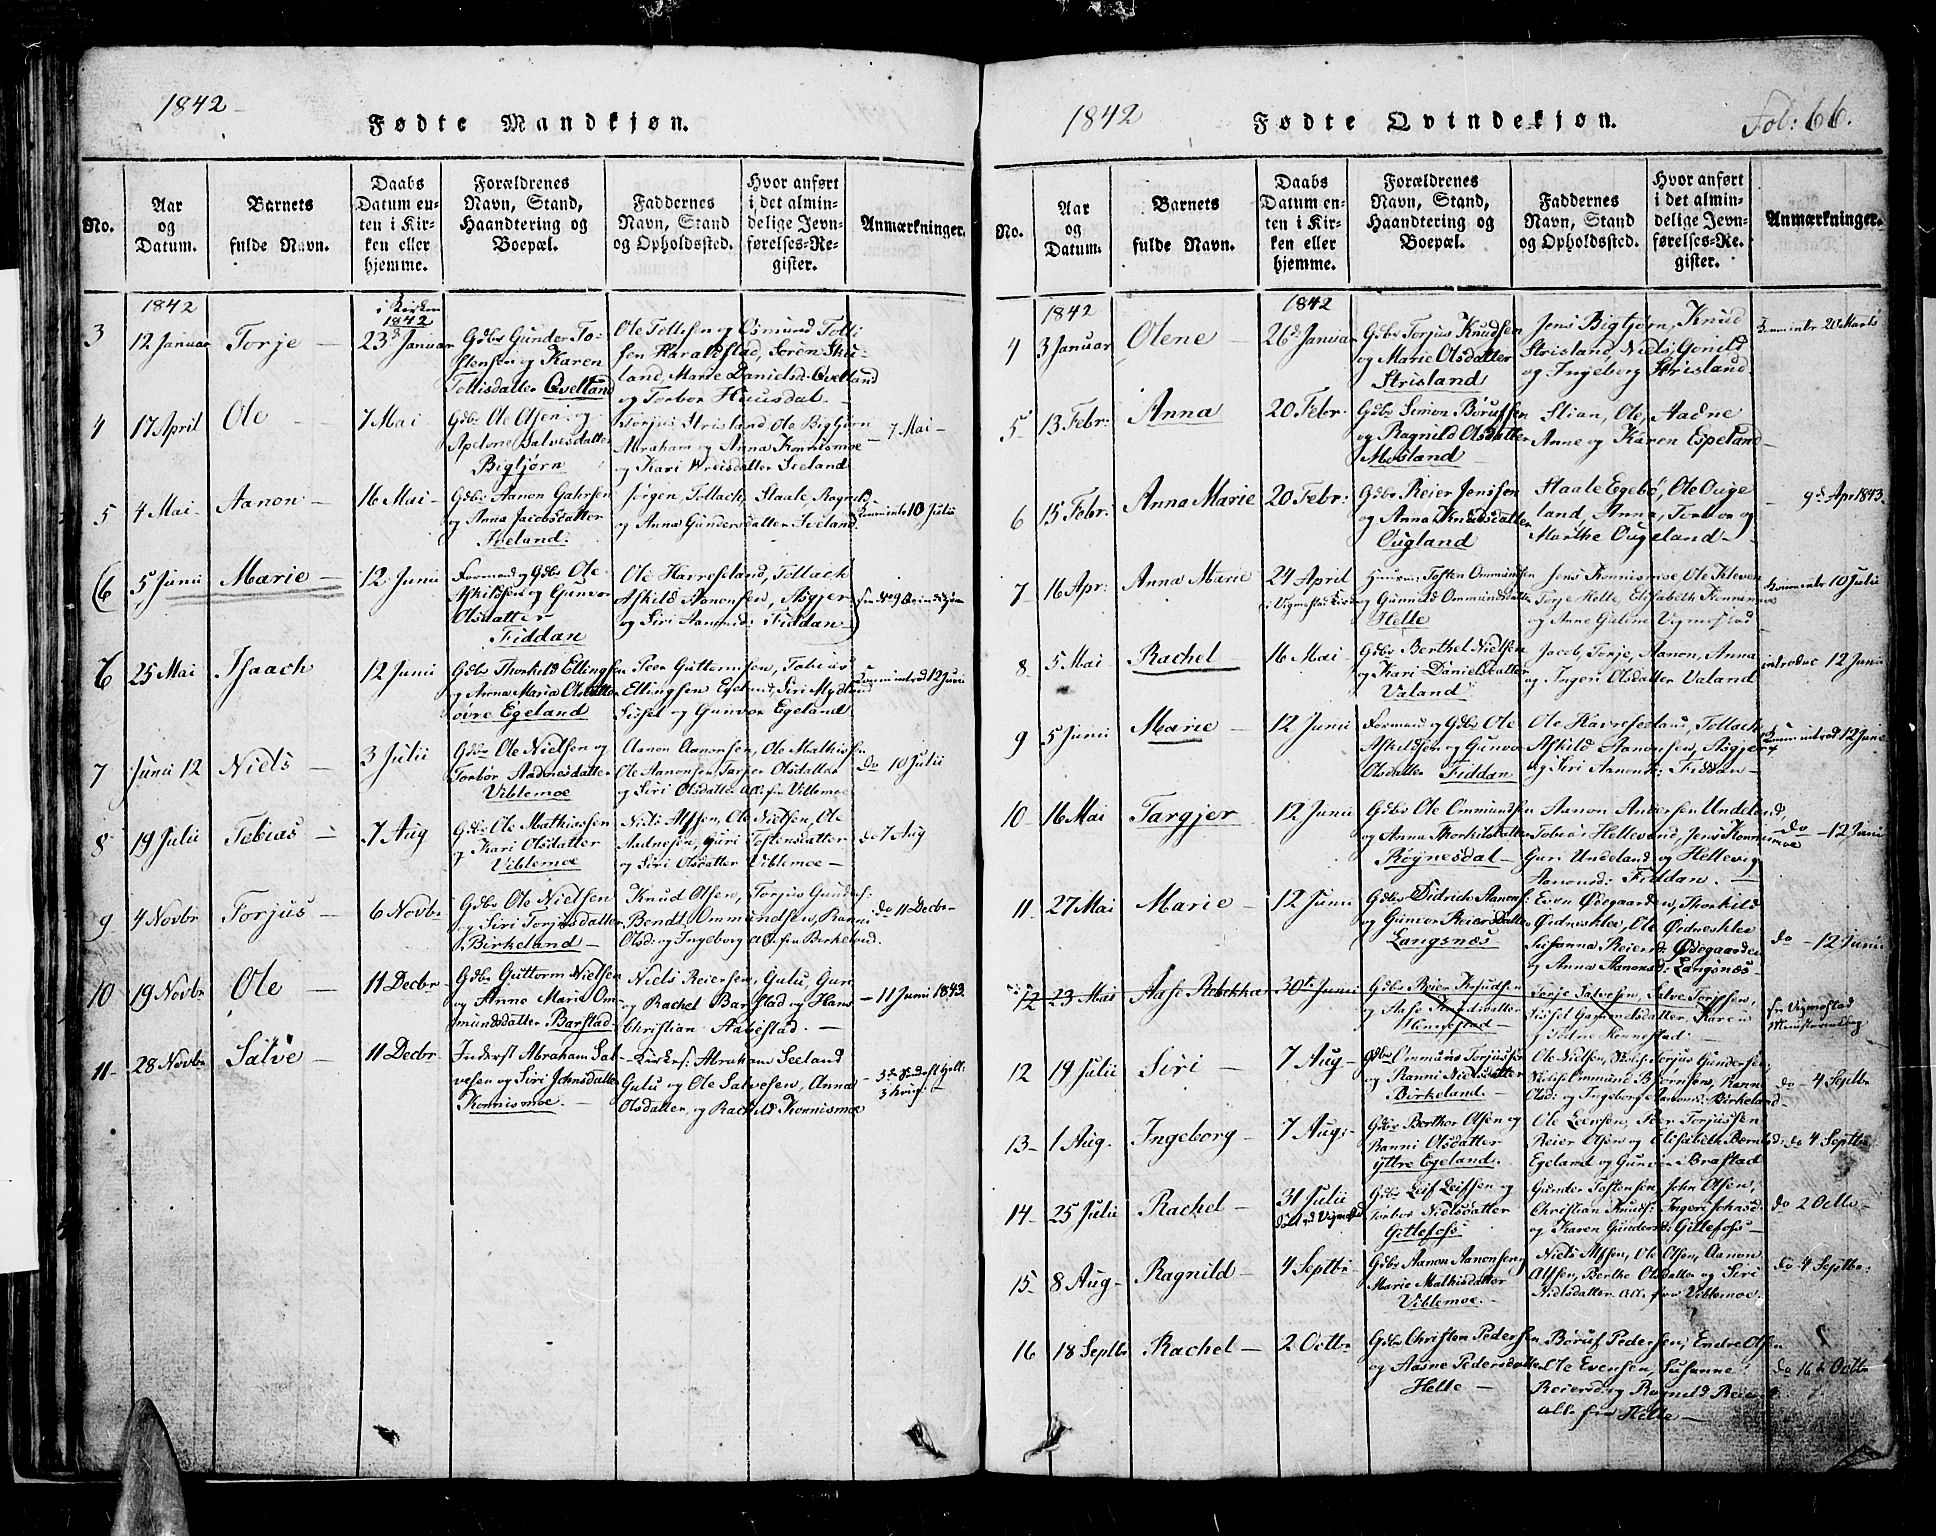 1842
Fødte Mandkjøn.
No.
Aar og Datum.
Barnets fulde Navn.
Daabs Datum enten i Kirken eller hjemme.
Forældrenes Navn, Stand, Haandtering og Boepæl.
Faddernes Navn, Stand og Opholdssted.
Hvor anført i det almindelige Jevnførelses-Register.
Anmærkninger.
1842
i Kirken 1842
3 12 Januar Torje – 23d Januar
Gdbr Gunder Tostensen og Karen Tollisdatter Qvelland
Ole Tollefsen og Osmund Tollisen Haraldstad, Søren Skuland, Marie Danielsd. Qvelland og Torbor Huusdal.
4 17 April Ole – 7 Mai
Gdbr Ole Olsen og Apelone Salvesdatter Bigtjørn
Torjus Strisland, Ole Bigtjørn Abraham og Anna Konnismoe og Kari Seeland
– 7 Mai –
5 4 Mai – Aanon – 16 Mai –
Gdbr Aanon Gahrsen og Anna Jacobsdatter Iveland.
Jørgen, Tollach, Staale Ragnild og Anna Gundersdatter Iveland
10 Julii
(6 5 Junii Marie – 12 Junii
Formand og Gdbr Ole Askildsen og Gunvor Olsdatter Fiddan
Ole Harreseland, Tollach Askild Aanonsen, Asgjer og Siri Aanonsd: Fiddan
6 25 Mai Isaach 12 Junii
Gdbr Thorkild Ellingsen og Anna Maria Olsdatter øvre Egeland
Peer Guttormsen, Tobias Ellingsen Egeland, Siri Mydland Sissel og Gunvor Egeland
introd 12 Junii
7 Junii 12 Niels – 3 Julii
Gdbr Ole Nielsen og Torbor Aadnesdatter Viblemoe
Aanon Aanonsen, Ole Mathissen Ole Aanonsen, Tarjer Olsdatter og Siri Olsdatter all. fra Viblemoe
do 10 Julii
8 19 Julii Tobias – 7 Aug
Gdbr Ole Mathissen og Kari Olsdatter Viblemoe
Niels Alfsen, Ole Nielsen, Ole Aadnesen, Guri Tostensdatter og Siri Olsdatter Viblemoe –
do 7 Aug
9 4 Novbr Torjus – 6 Novbr
Gdbr Ole Nielsen og Siri Torjusdatter Birkeland –
Knud Olsen, Torjus Gunders: Bendt Ommundsen, Ranni Olsd: og Ingeborg all. fra Birkeland.
do 11 Decbr –
10 19 Novbr Ole – 11 Decbr
Gdbr Guttorm Nielsen og Anne Maria Ommundsdatter Barstad –
Niels Reiersen, Gulu, Guri og Rachel Barstad og Hans Christian Aavestad. –
– 11 Juni 1843.
11 – 28 Novbr Salve – 11 Decbr
Inderst Abraham Salvesen og Siri Johnsdatter Konnismoe. –
Kirkes: Abraham Seeland Gulu og Ole Salvesen, Anna Olsdatter og Rachel Konnismoe
1842
Fødte Qvindekjøn.
Fol: 66.
No.
Aar og Datum.
Barnets fulde Navn.
Daabs Datum enten i Kirken eller hjemme.
Forældrenes Navn, Stand, Haandtering og Boepæl.
Faddernes Navn, Stand og Opholdssted.
Hvor anført i det almindelige Jevnførelses-Register.
Anmærkninger.
1842
1842
4 3 Januar Olene – 26d Januar
Gdbr Torjus Knudsen og Marie Olsdatter Strisland
Jens Bigtjørn, Knud Strisland, Niels, Gunild og Ingeborg Strisland
20 Marts
5 13 Febr: Anna 20 Febr:
Gdbr Simon Børufsen og Ragnild Olsdatter Mosland
Stian, Ole, Aadne Anne og Karen Espeland –
6 15 Febr: Anna Marie 20 Febr:
Gdbr Reier Jenssen og Anna Knudsdatter Ougland
Staale Egebø, Ole Ougeland, Anna, Torbor og Marthe Ougeland –
– 9d Apr 1843.
7 16 Apr: Anna Marie 24 April i Vigmostad Kirke
Tosten Ommundsen og Gunnild Ommundsdatter Helle
Jens Konnismoe, Ole Kleven Torje Helle, Elisabeth Konnismoe og Anne Gulene Vigmostad –
10 Julii
8 5 Mai Rachel 16 Mai
Gdbr Berthel Nielsen og Kari Danielsdatter Valand
Jacob, Torje, Aanon, Anna og Ingeri Olsdatter Valand
introduc 12 Junii
9 5 Junii Marie – 12 Junii
Formand og Gdbr Ole Askildsen og Gunvor Olsdatter Fiddan
Ole Harreseland, Tollach Askild Aanonsen, Asgjer og Siri Aanonsd: Fiddan –
introd 12 Junii
10 16 Mai Targjer 12 Junii
Gdbr Ole Ommundsen og Anna Thorkildsdatter Røynesdal –
Aanon Andersen Undeland, Tobias Hellevand, Jens Konnismoe Guri Undeland og Hellevig Aanonsd: Fiddan. –
do – 12 Junii
11 27 Mai Marie – 12 Junii
Gdbr Didrich Aanons: og Gunvor Reiersdatter Langsnæs
Even Ødegaarden, Thorkild Ørdneskløv, Ole Ørdneskløv Susanna Reiersd: Ødegaarden og Anna Aanonsd: Langsnæs –
do – 12 Junii
12 23 Mai Aase Rebekka 30te Junii
Gdbr Reier Knudsen og Aase Hennestad –
Torje Salvesen, Salve Torjesen, Sissel Gammelsdatter, Karen
fra Vigmostad Ministerialbog
12 19 Julii Siri – 7 Aug –
Gdbr Ommund Torjussen og Ranni Nielsdatter Birkeland. –
Ole Nielsen, Torjus Gundersen, Ommund Bjørnsen, Ranni Olsd: og Ingeborg Aanonsd: Birkeland –
do – 4 Septbr
13 – 1 Aug. Ingeborg – 7 Aug:
Gdbr Berthor Olsen og Ranni Olsdatter yttre Egeland.
Ole Leensen, Peer Torjussen Reier Olsen og Elisabeth Egeland og Gunvor Brastad
do 4 Septbr
14 – 25 Julii Rachel – 31 Julii
Gdbr Leif Leifsen og Torbor Nielsdatter Gittefoss
Gunder Tostensen, John Olsen, Christian Knuds: Ingeri Johnsd: og Karen Gundersd: Gittefoss –
do 2 Octbr –
15 – 8 Aug – Ragnild – 4 Septbr –
Gdbr Aanon Aanonsen og Marie Mathisdatter Viblemoe. –
Niels Alfsen, Ole Olsen, Aanon Alfsen, Berthe Olsdatter og Siri Nielsdatter all. fra Viblemoe.
do 4 Septbr:
16 18 Septbr Rachel – 2 Octbr
Gdbr Christen Pedersen og Aasne Pedersdatter Helle –
Børuf Pedersen, Endre Olsen Ole Evensen, Susanne Reiersd og Ragnild Reiersd alle fra Helle –
do 16 Octbr